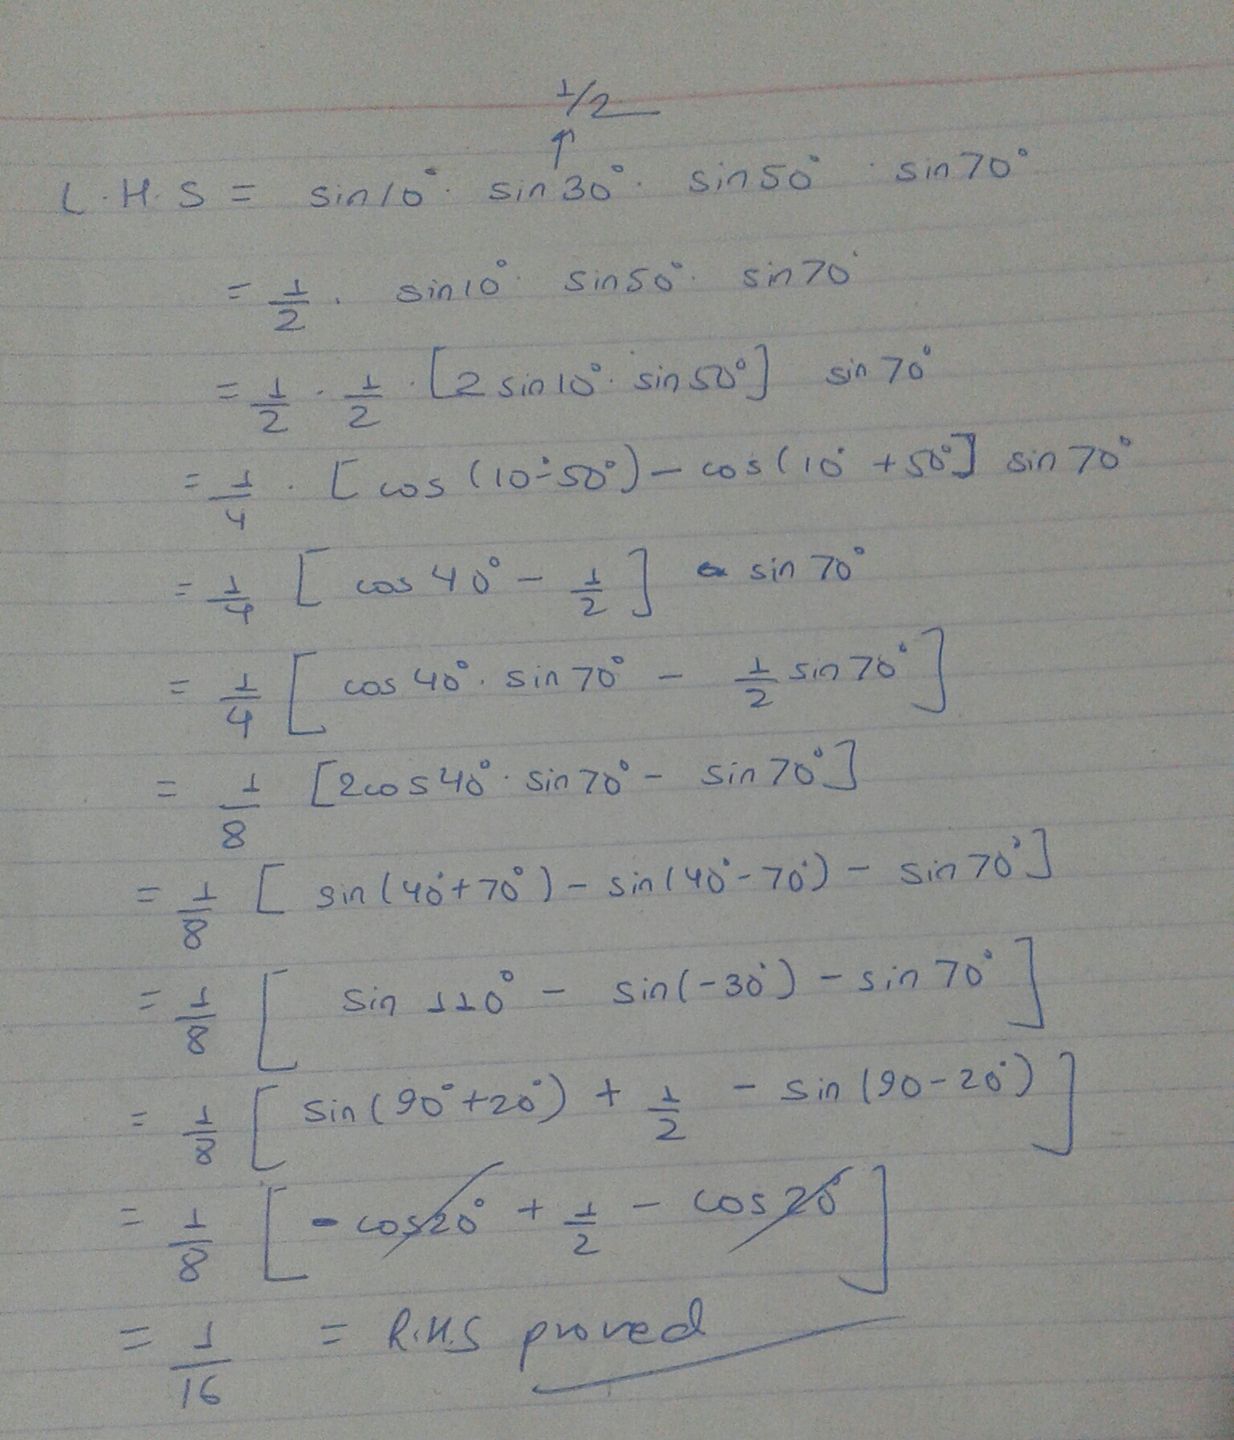 1/2
↑
L.H.S = sin10°. sin30°. sin50° . sin70°
= 1/2 . sin10°. sin50°. sin70°
= 1/2 . 1/2 . [2 sin10°. sin50°] sin70°
= 1/4 . [cos(10°-50°) - cos(10° + 50°] sin70°
= 1/4 [cos40° - 1/2] sin70°
= 1/4 [cos40°. sin70° - 1/2 sin70°]
= 1/8 [2cos40°. sin70° - sin70°]
= 1/8 [sin(40°+70°) - sin(40°-70°) - sin70°]
= 1/8 [sin110° - sin(-30°) - sin70°]
= 1/8 [sin(90°+20°) + 1/2 - sin(90-20°)]
= 1/8 [-cos20° + 1/2 - cos20°]
= 1/16 = R.H.S proved